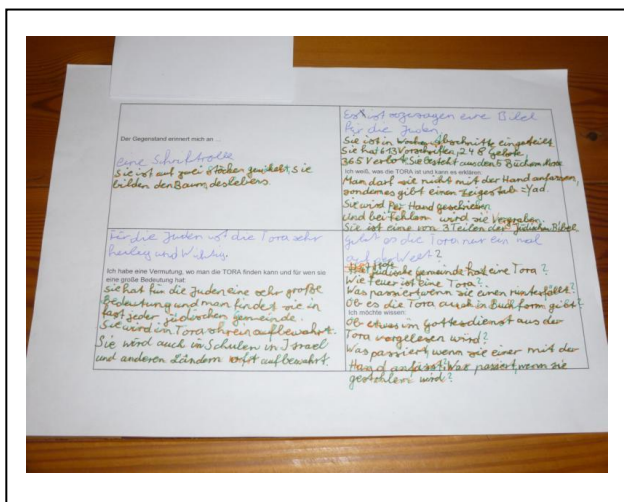 Der Gegenstand erinnert mich an ...
eine Schriftrolle
Sie ist auf zwei Stöcken gewickelt, Sie
bilden den Baum des lebens.
Es ist sozusagen eine Bibel
für die Juden
Sie ist in Wochenabschnitte eingeteilt
Sie hat 613 Vorschriften, 248 Gebote,
365 Verbote, Sie besteht aus den 5 Büchern Mose
Ich weiß, was die TORA ist und kann es erklären:
Man darf sie nicht mit der Hand anfassen,
sondern es gibt einen Zeigestab = Yad.
Sie wird Per Hand geschrieben
Und bei Fehlern wird sie Vergraben.
Sie ist eine von 3 Teilen der Jüdischen Bibel
Für die Juden ist die Tora sehr
heilig und
Ich habe eine Vermutung, wo man die TORA finden kann und für wen sie
eine große Bedeutung hat:
Sie hat für die Juden eine sehr große
Bedeutung und man findet sie in
fast jeder jüdischen gemeinde.
Sie wird in Tora schrein aufbewahrt.
Sie wird auch in Schulen in Israel
und anderen Ländern aufbewahrt.
gibt es die Tora nur ein mal
auf der Welt?
Hat jede jüdische Gemeinde eine Tora?
Wie teuer ist eine Tora?
Was passiert wenn sie einen runterfällt?
Ob es die Tora auch in Buchform gibt?
Ich möchte wissen:
Ob etwas im Gottesdienst aus der
Tora vorgelesen wird?
Was passiert, wenn sie einer mit der
Hand anfässt? Was passiert, wenn sie
gestohlen wird?